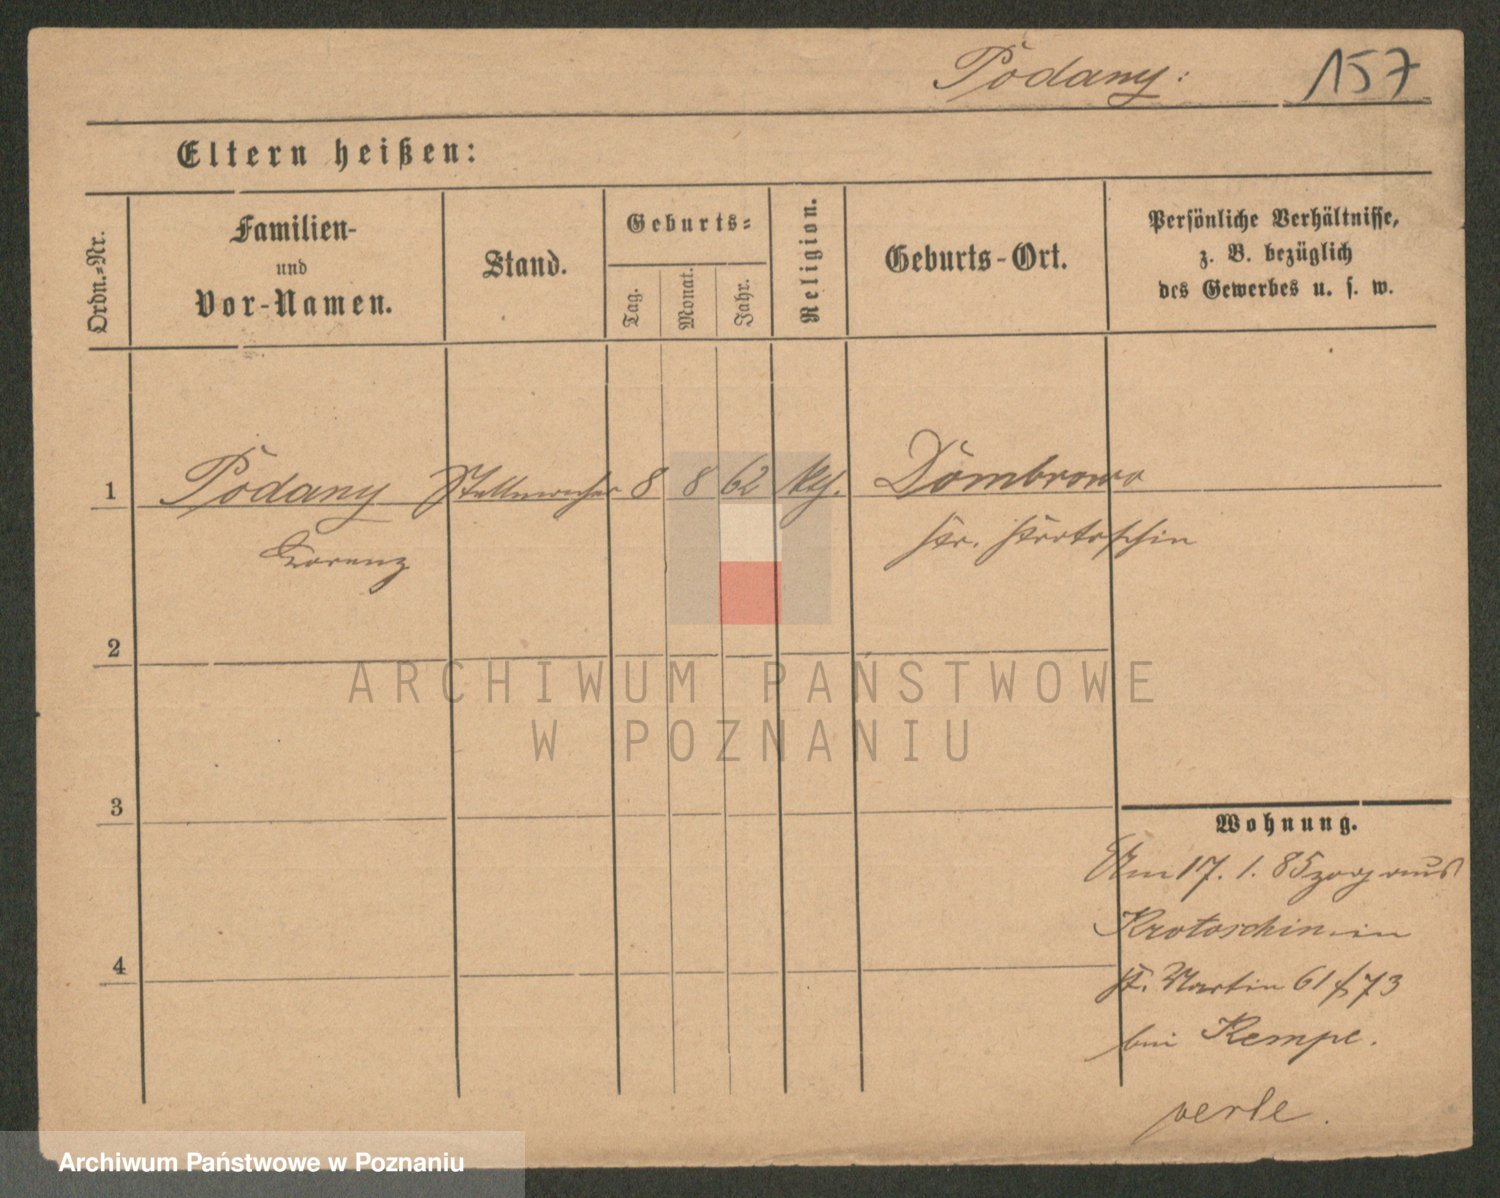 Podany:
157
Eltern heißen:
Ordn.-Nr.
Familien-
und
Vor-Namen.
Stand.
Geburts-
Tag.
Monat.
Jahr.
Religion.
Geburts-Ort.
Persönliche Verhältnisse,
z. B. bezüglich
des Gewerbes u. s. w.
1
Podany
Stellmacher
8
8
62
kth.
Dombrowo
Lorenz
Kr. Krotoschin
2
ARCHIWUM PAŃSTWOWE
W POZNANIU
3
Wohnung.
Am 17. 1. 85 zog aus
Krotoschin in
4
St. Martin 61/73
bei Kempe.
Archiwum Państwowe w Poznaniu